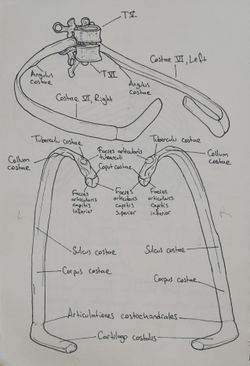 T V.
Costae VI, Left
T VI
Angulus
costae
Angulus
costae
Costae VI, Right
Tuberculu costae
Facies articularis
tuberculi
Tuberculu costae
Collum
costae
Caput costae
Collum
costae
Facies
articularis
capitis
inferior
Facies
articularis
capitis
superior
Facies
articularis
capitis
inferior
Sulcus costae
Sulcus costae
Corpus costae
Corpus costae
Articulationes costochondrales
Cartilago costalis